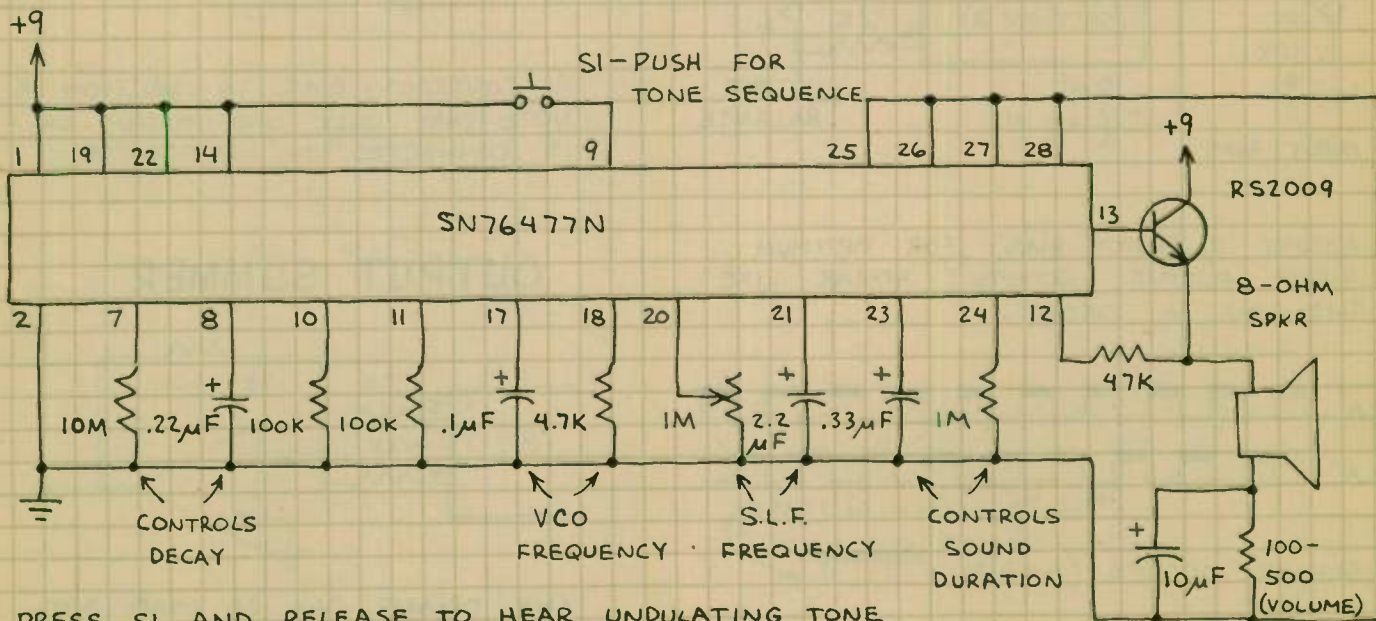 +9
S1-PUSH FOR
TONE SEQUENCE
+9
1 19 22 14 9 25 26 27 28
RS2009
SN76477N
13
8-OHM
SPKR
2 7 8 10 11 17 18 20 21 23 24 12
47K
+ + + +
10M .22µF 100K 100K .1µF 4.7K 1M 2.2 µF .33µF 1M
CONTROLS
DECAY
VCO
FREQUENCY
S.L.F.
FREQUENCY
CONTROLS
SOUND
DURATION
+
10µF
100-
500
(VOLUME)
PRESS S1 AND RELEASE TO HEAR UNDULATING TONE